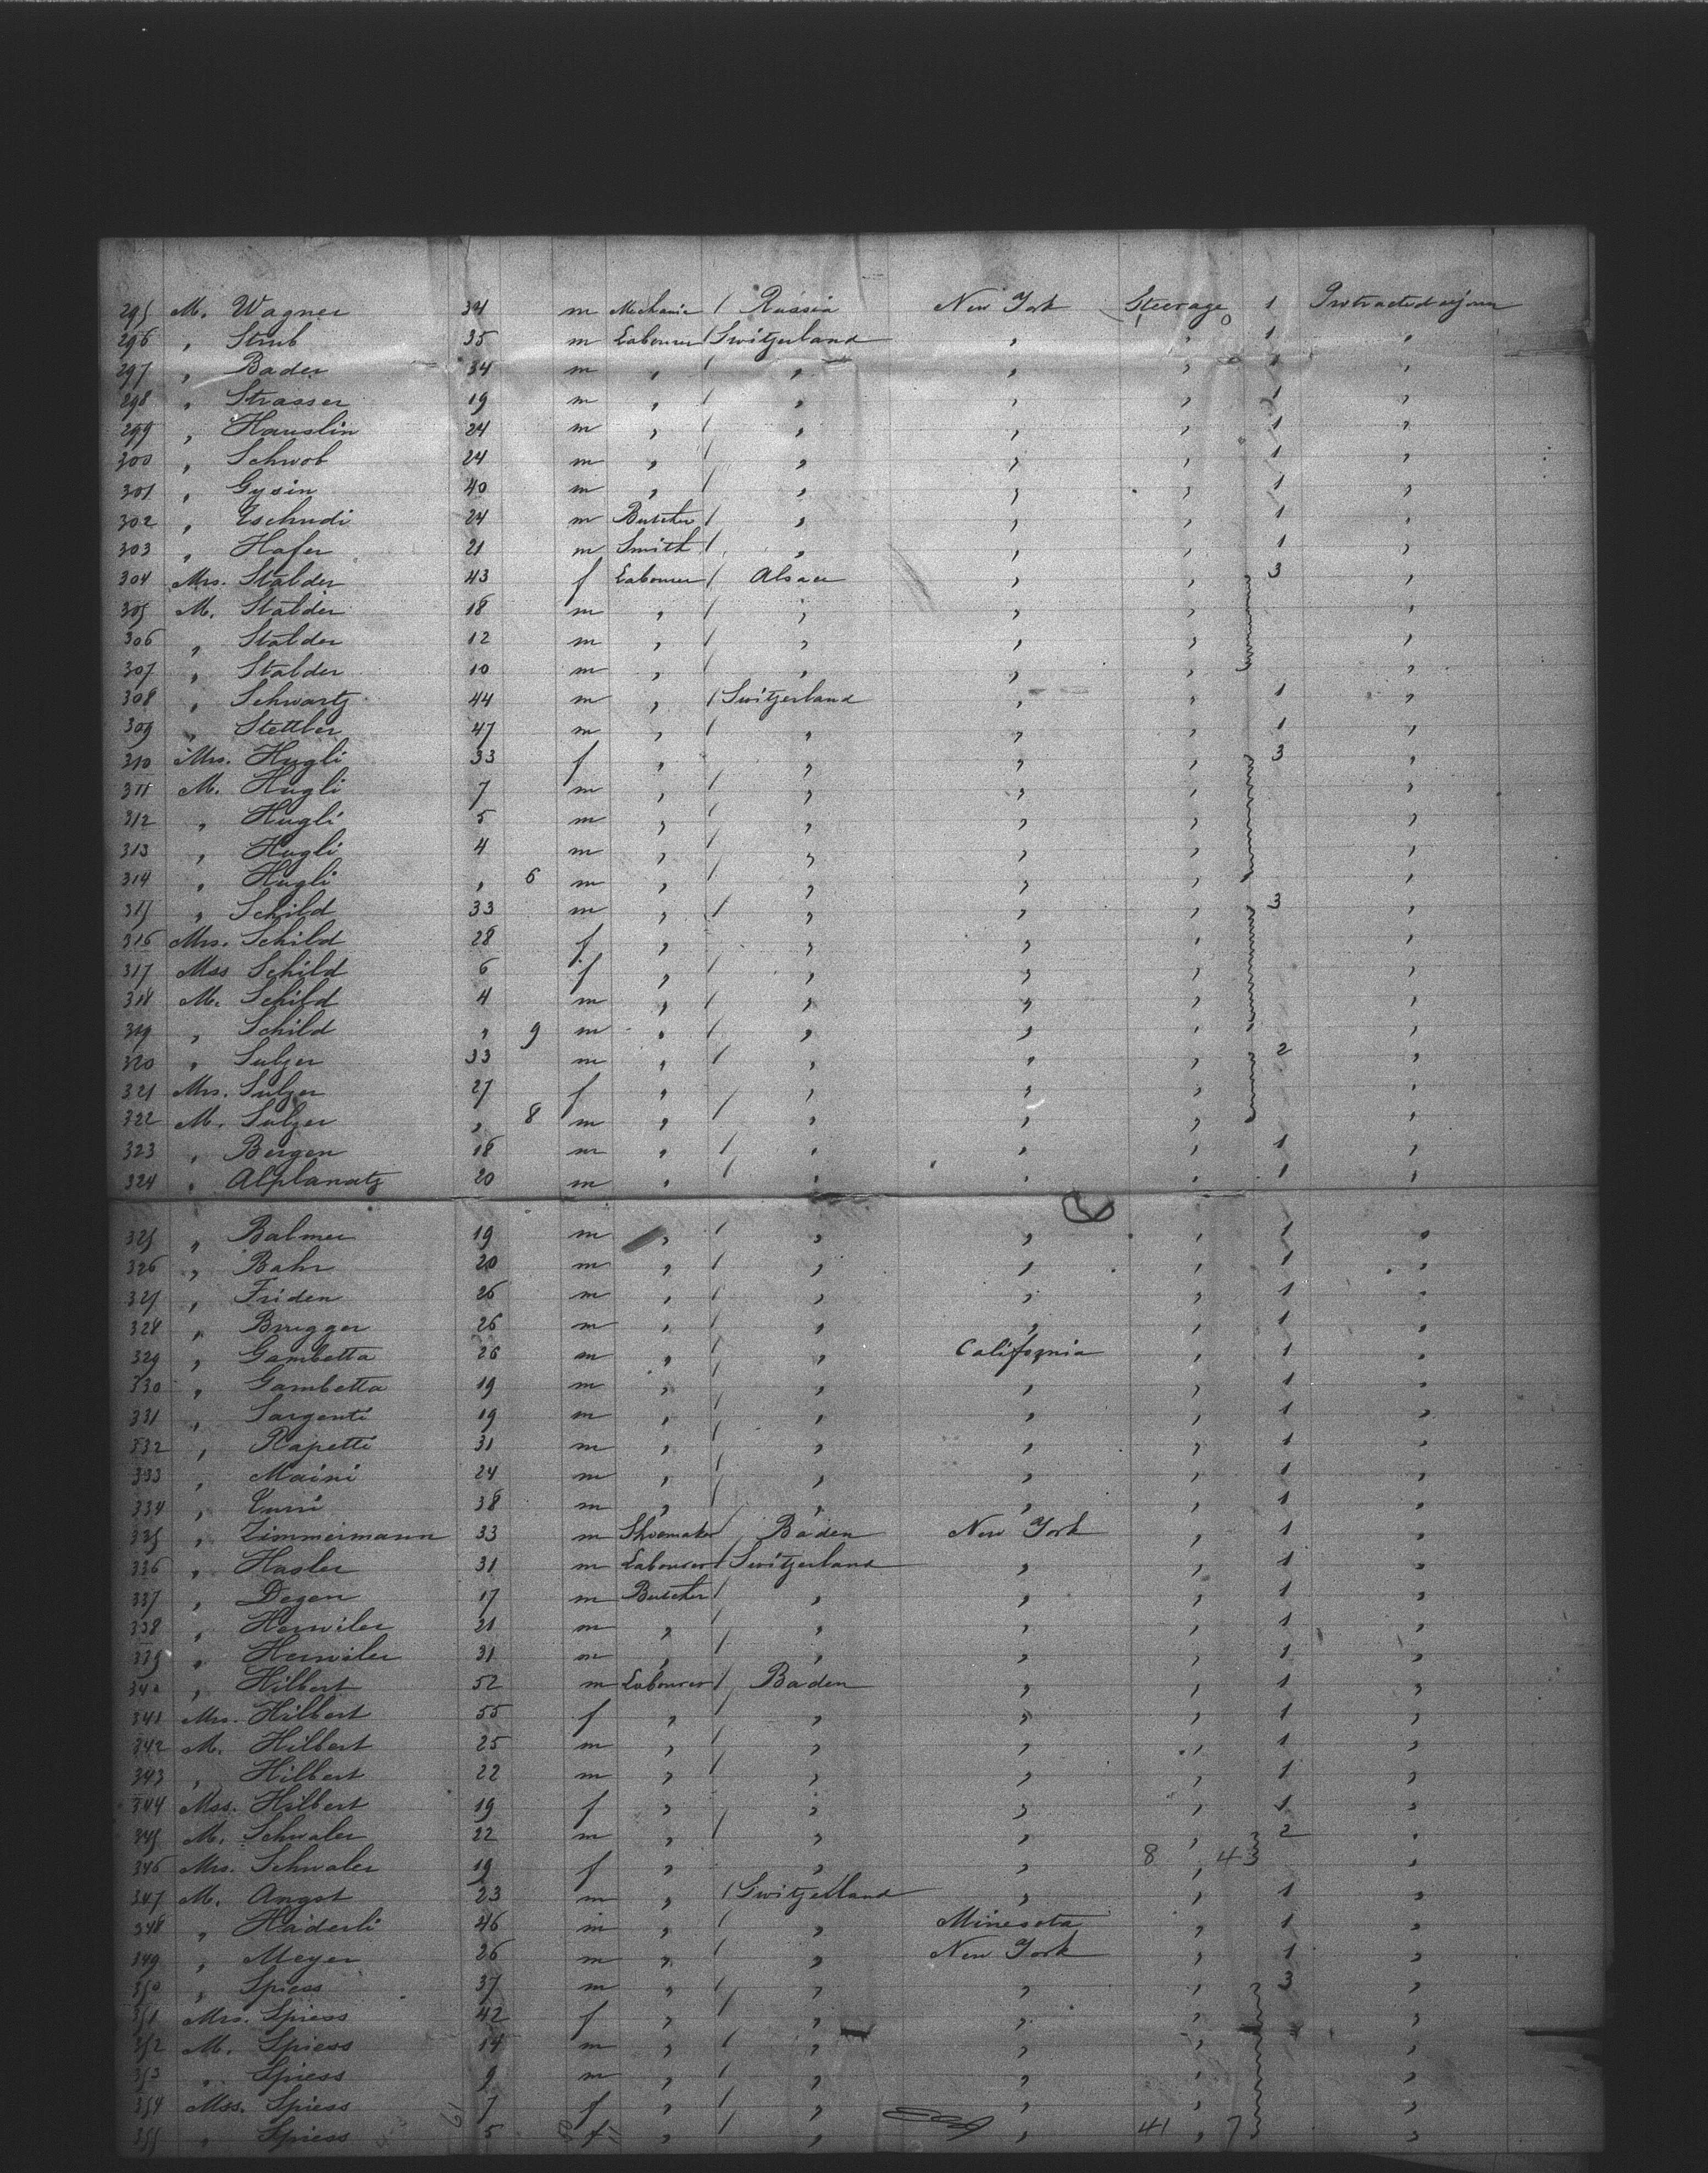 295 M. Wagner 34 m Mechanic / Russia New York Steerage 1 Protracted sejour
296 , Strub 35 m Labourer / Switzerland , , 1 ,
297 , Bader 34 m , / , , , 1 ,
298 , Strasser 19 m , / , , , 1 ,
299 , Hauslin 24 m , / , , , 1 ,
300 , Schwob 24 m , / , , , 1 ,
301 , Gysin 40 m , / , , , 1 ,
302 , Tschudi 24 m Butcher / , , , 1 ,
303 , Hafer 21 m Smith / , , , 1 ,
304 Mrs. Stalder 43 f Labourer / Alsace , , 3 ,
305 M. Stalder 18 m , / , , , ,
306 , Stalder 12 m , / , , , ,
307 , Stalder 10 m , / , , , ,
308 , Schwartz 44 m , / Switzerland , , 1 ,
309 , Stettler 47 m , / , , , 1 ,
310 Mrs. Hugli 33 f , , , , 3 ,
311 M. Hugli 7 m , / , , , ,
312 , Hugli 5 m , / , , , ,
313 , Hugli 4 m , / , , , ,
314 , Hugli , 6 m , / , , , ,
315 , Schild 33 m , / , , , 3 ,
316 Mrs. Schild 28 f , , , , ,
317 Mss Schild 6 f , / , , , ,
318 M. Schild 4 m , / , , , ,
319 , Schild , 9 m , / , , , ,
320 , Sulzer 33 m , / , , , 2 ,
321 Mrs. Sulzer 27 f , / , , , ,
322 M. Sulzer , 8 m , / , , , ,
323 , Bergen 18 m , / , , , 1 ,
324 , Alplanatz 20 m , / , , , 1 ,
325 , Balmer 19 m , / , , , 1 ,
326 , Bahr 20 m , / , , , 1 ,
327 , Friden 26 m , / , , , 1 ,
328 , Brugger 26 m , / , , , 1 ,
329 , Gambetta 26 m , / , California , 1 ,
330 , Gambetta 19 m , / , , , 1 ,
331 , Sargenti 19 m , / , , , 1 ,
332 , Rapetti 31 m , / , , , 1 ,
333 , Maini 24 m , / , , , 1 ,
334 , 38 m , / , , , 1 ,
335 , Zimmermann 33 m Shoemaker / Baden New York , 1 ,
336 , Hasler 31 m Labourer / Switzerland , , 1 ,
337 , Degen 17 m Butcher / , , , 1 ,
338 , Herwiler 21 m , / , , , 1 ,
339 , Herwiler 31 m , / , , , 1 ,
340 , Hilbert 52 m Labourer / Baden , , 1 ,
341 Mrs. Hilbert 55 f , / , , , 1 ,
342 M. Hilbert 25 m , / , , , 1 ,
343 , Hilbert 22 m , / , , , 1 ,
344 Mss. Hilbert 19 f , / , , , 1 ,
345 M. Schwaler 22 m , / , , , 2 ,
346 Mrs. Schwaler 19 f , , , 8 , 43 ,
347 M. Angst 23 m , / Switzelland , , 1 ,
348 , Haderli 46 m , / , Minesota , 1 ,
349 , Meyer 26 m , / , New York , 1 ,
350 , Spiess 37 m , / , , , 3 ,
351 Mrs. Spiess 42 f , / , , , ,
352 M. Spiess 14 m , / , , , ,
353 , Spiess 9 m , / , , , ,
354 Mss. Spiess 7 f , / , , , ,
355 , Spiess 5 f , / , , 41 , 7 ,